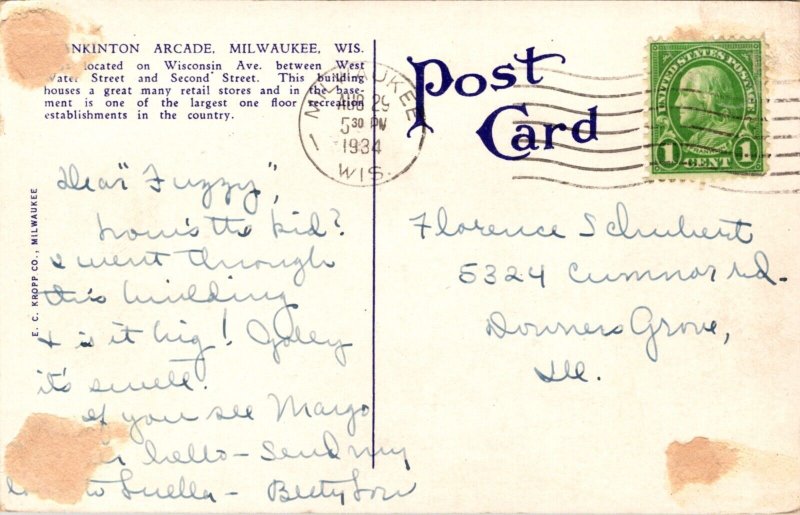 ANKINTON ARCADE, MILWAUKEE, WIS.
located on Wisconsin Ave. between West
Water Street and Second Street. This building
houses a great many retail stores and in the base-
ment is one of the largest one floor recreation
establishments in the country.
E. C. KROPP CO., MILWAUKEE
Post
Card
MILWAUKEE
AUG 29
5 30 PM
1934
WIS.
UNITED STATES POSTAGE
FRANKLIN
1 CENT 1
Dear "Fuzzy",
how's the kid?
I went through
this building
& is it big! Golley
it's swell.
If you see Margo
hello – Send my
to Luella – Betty Lou
Florence Schubert
5324 Cumnor Rd.
Downers Grove,
Ill.